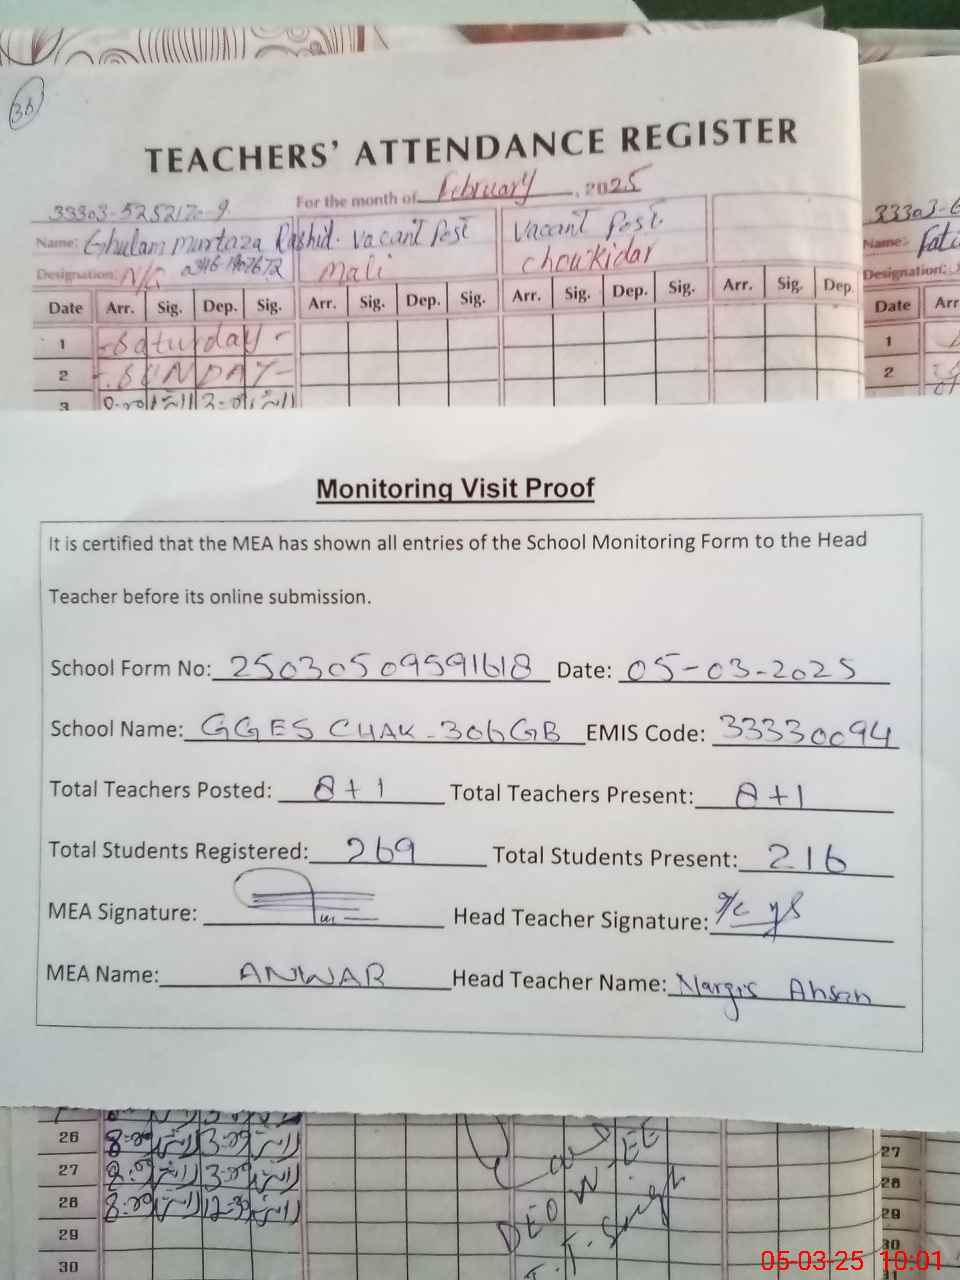 36
TEACHERS' ATTENDANCE REGISTER
For the month of February, 2025
33303-5252120-9
33303-6
Name: Ghulam Murtaza Rashid. Vacant Post
Vacant Post.
Name:- Fati
Designation: N/Q
Mali
Choukidar
Designation:
Date Arr. Sig. Dep. Sig. Arr. Sig. Dep. Sig. Arr. Sig. Dep. Sig. Arr. Sig. Dep. Date Arr
1 -Saturday- 1
2 -SUNDAY- 2
3
Monitoring Visit Proof
It is certified that the MEA has shown all entries of the School Monitoring Form to the Head
Teacher before its online submission.
School Form No: 25030509591618 Date: 05-03-2025
School Name: GGES CHAK-306GB EMIS Code: 33330094
Total Teachers Posted: 8+1 Total Teachers Present: 8+1
Total Students Registered: 269 Total Students Present: 216
MEA Signature: Head Teacher Signature:
MEA Name: ANWAR Head Teacher Name: Nargis Ahsan
26
27 27
28 12-39 28
29 DEO W-EE 29
30 T.T. Singh 30
05-03-25 10:01